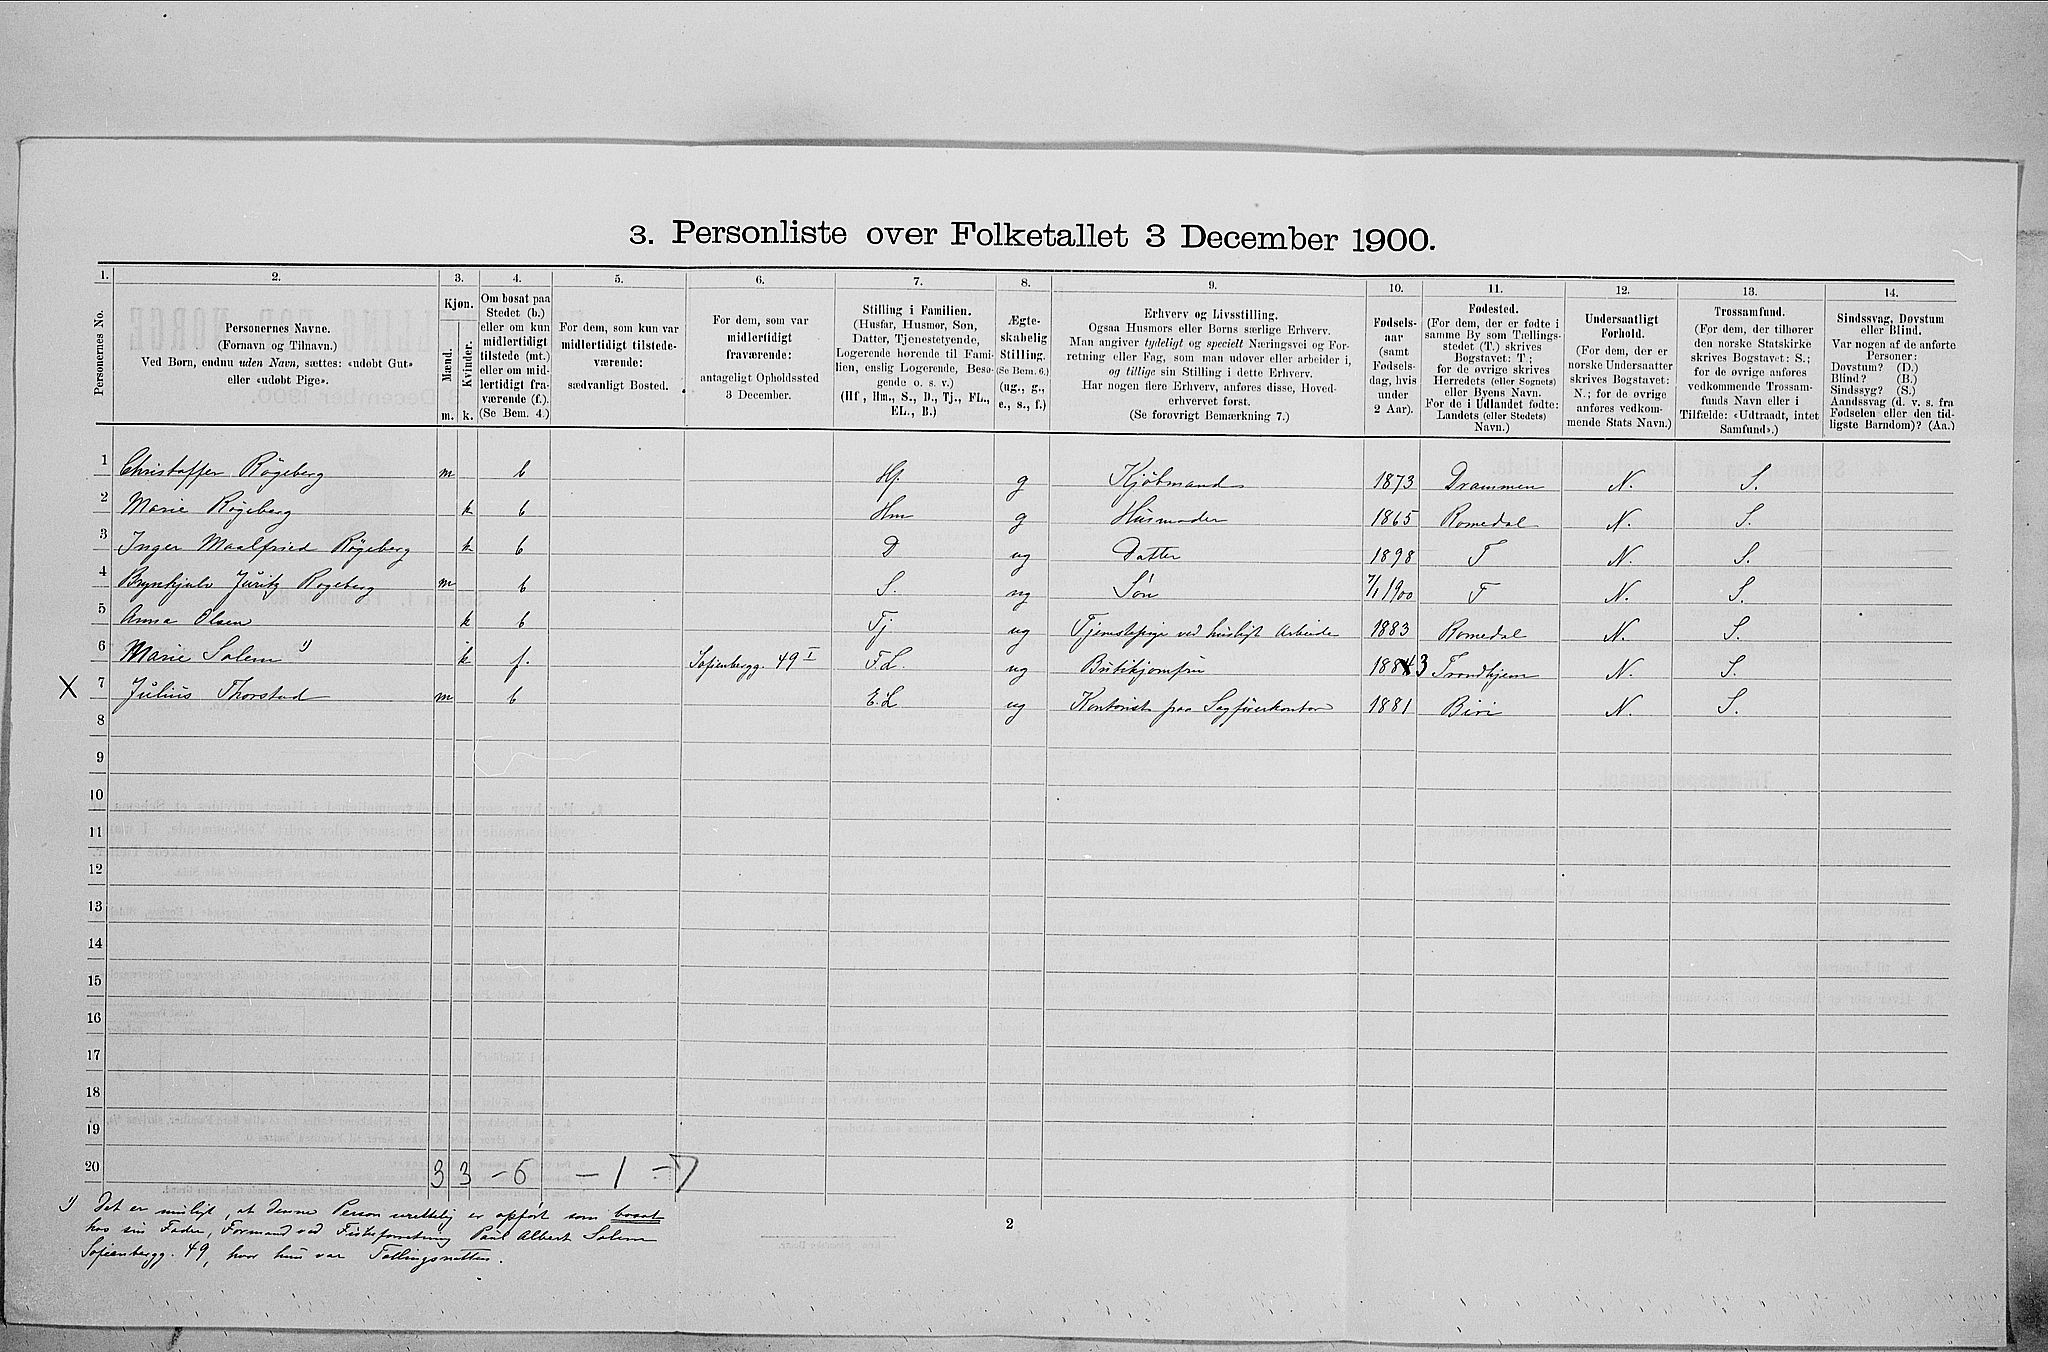 3. Personliste over Folketallet 3 December 1900.
1. 2. 3. 4. 5. 6. 7. 8. 9. 10. 11. 12. 13. 14.
Personernes No.
Personernes Navne.
(Fornavn og Tilnavn.)
Ved Børn, endnu uden Navn, sættes: «udøbt Gut»
eller «udøbt Pige».
Kjøn.
Mænd.
Kvinder.
m. k.
Om bosat paa
Stedet (b.)
eller om kun
midlertidigt
tilstede (mt.)
eller om mid-
lertidigt fra-
værende (f.)
(Se Bem. 4.)
For dem, som kun var
midlertidigt tilstede-
værende:
sædvanligt Bosted.
For dem, som var
midlertidigt
fraværende:
antageligt Opholdssted
3 December.
Stilling i Familien.
(Husfar, Husmor, Søn,
Datter, Tjenestetyende,
Logerende hørende til Fami-
lien, enslig Logerende, Besø-
gende o. s. v.)
(Hf, Hm., S., D., Tj., FL.,
EL., B.)
Ægte-
skabelig
Stilling.
(Se Bem. 6.)
(ug., g.,
e., s., f.)
Erhverv og Livsstilling.
Ogsaa Husmors eller Børns særlige Erhverv.
Man angiver tydeligt og specielt Næringsvei og For-
retning eller Fag, som man udøver eller arbeider i,
og tillige sin Stilling i dette Erhverv.
Har nogen flere Erhverv, anføres disse, Hoved-
erhvervet først.
(Se forøvrigt Bemærkning 7.)
Fødsels-
aar
(samt
Fødsels-
dag, hvis
under
2 Aar).
Fødested.
(For dem, der er fødte i
samme By som Tællings-
stedet (T.) skrives
Bogstavet: T.;
for de øvrige skrives
Herredets (eller Sognets)
eller Byens Navn.
For de i Udlandet fødte:
Landets (eller Stedets)
Navn.)
Undersaatligt
Forhold.
(For dem, der er
norske Undersaatter
skrives Bogstavet:
N.; for de øvrige
anføres vedkom-
mende Stats Navn.)
Trossamfund.
(For dem, der tilhører
den norske Statskirke
skrives Bogstavet: S.;
for de øvrige anføres
vedkommende Trossam-
funds Navn eller i
Tilfælde: «Udtraadt, intet
Samfund».)
Sindssvag, Døvstum
eller Blind.
Var nogen af de anførte
Personer:
Døvstum? (D.)
Blind? (B.)
Sindssyg? (S.)
Aandssvag (d. v. s. fra
Fødselen eller den tid-
ligste Barndom)? (Aa.)
1 Christoffer Røgeberg m b Hf. g Kjøbmand 1873 Drammen N. S.
2 Marie Røgeberg k b Hm g Husmoder 1865 Romedal N. S.
3 Inger Maalfried Røgeberg k b D ug Datter 1898 T N. S.
4 Brynhjulv Juritz Rogeberg m b S. ug Søn 7/1 1900 T N. S.
5 Anna Olsen k b Tj ug Tjenestepige ved husligt Arbeide 1883 Romedal N. S.
6 Marie Solem 1) k f. Sofienbergg. 49 I F.L. ug Butikjomfru 1884 3 Trondhjem N. S.
X 7 Julius Thorstad m b E.L ug Kontorist paa Sagførerkontor 1881 Biri N. S.
8
9
10
11
12
13
14
15
16
17
18
19
20 3 3 - 6 - 1 = 7
1) Det er muligt, at denne Person urettelig er opført som bosat
hos sin Fader, Formand ved Fiskeforretning Paul Albert Solem
Sofienbergg. 49, hvor hun var Tællingsnatten.
2